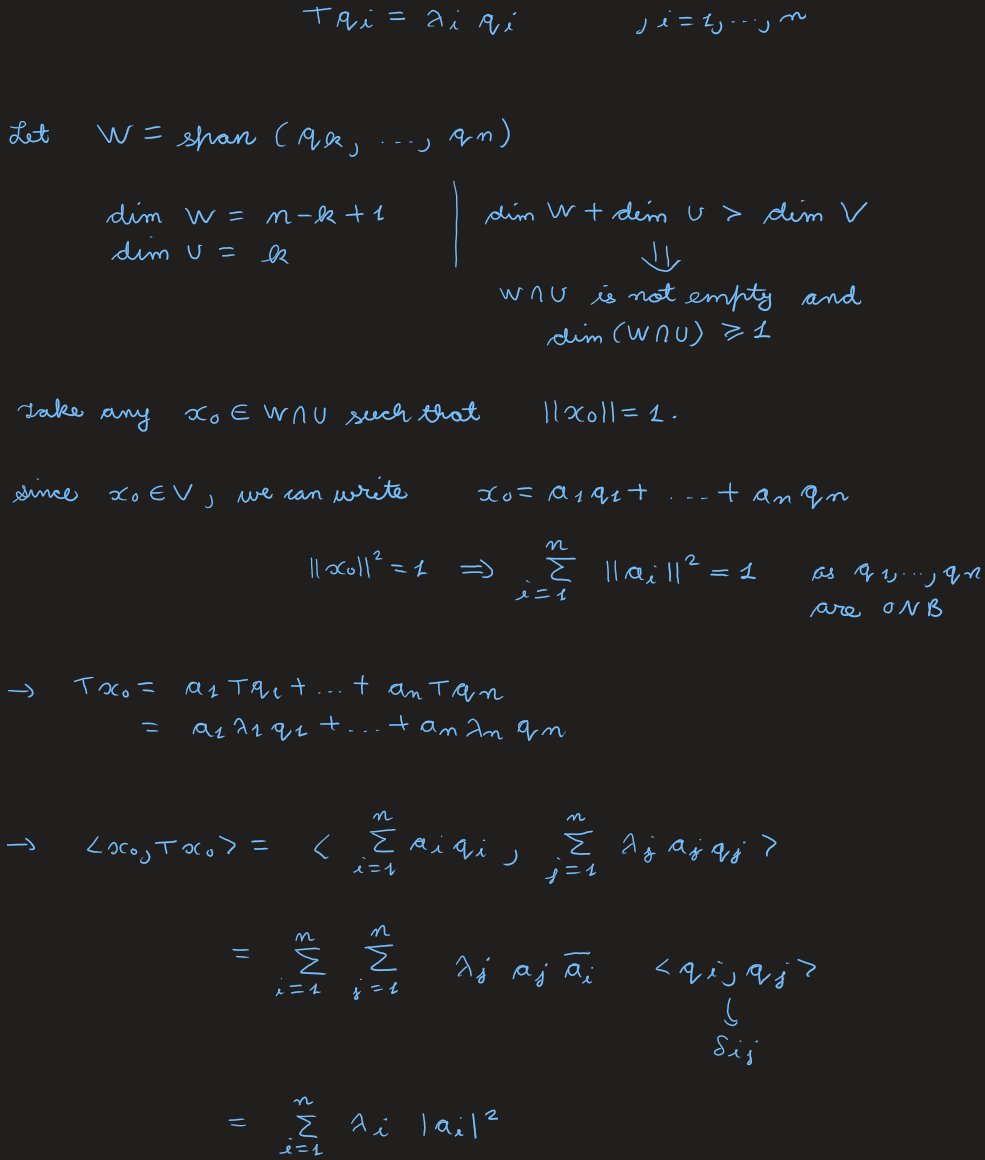 Tqᵢ = λᵢ qᵢ , i = 1, ..., n
Let W = span (qₖ, ..., qₙ)
dim W = n-k+1 | dim W + dim U > dim V
dim U = k ⇓
W∩U is not empty and
dim (W∩U) ⩾ 1
Take any x₀ ∈ W∩U such that ||x₀|| = 1.
since x₀ ∈ V, we can write x₀ = a₁q₁ + ... + aₙqₙ
||x₀||² = 1 ⇒ ∑ᵢ₌₁ⁿ ||aᵢ||² = 1 as q₁, ..., qₙ
are ONB
→ Tx₀ = a₁Tq₁ + ... + aₙTqₙ
= a₁λ₁q₁ + ... + aₙλₙqₙ
→ <x₀, Tx₀> = < ∑ᵢ₌₁ⁿ aᵢqᵢ , ∑ⱼ₌₁ⁿ λⱼ aⱼ qⱼ >
= ∑ᵢ₌₁ⁿ ∑ⱼ₌₁ⁿ λⱼ aⱼ a̅ᵢ <qᵢ, qⱼ>
↓
δᵢⱼ
= ∑ᵢ₌₁ⁿ λᵢ |aᵢ|²